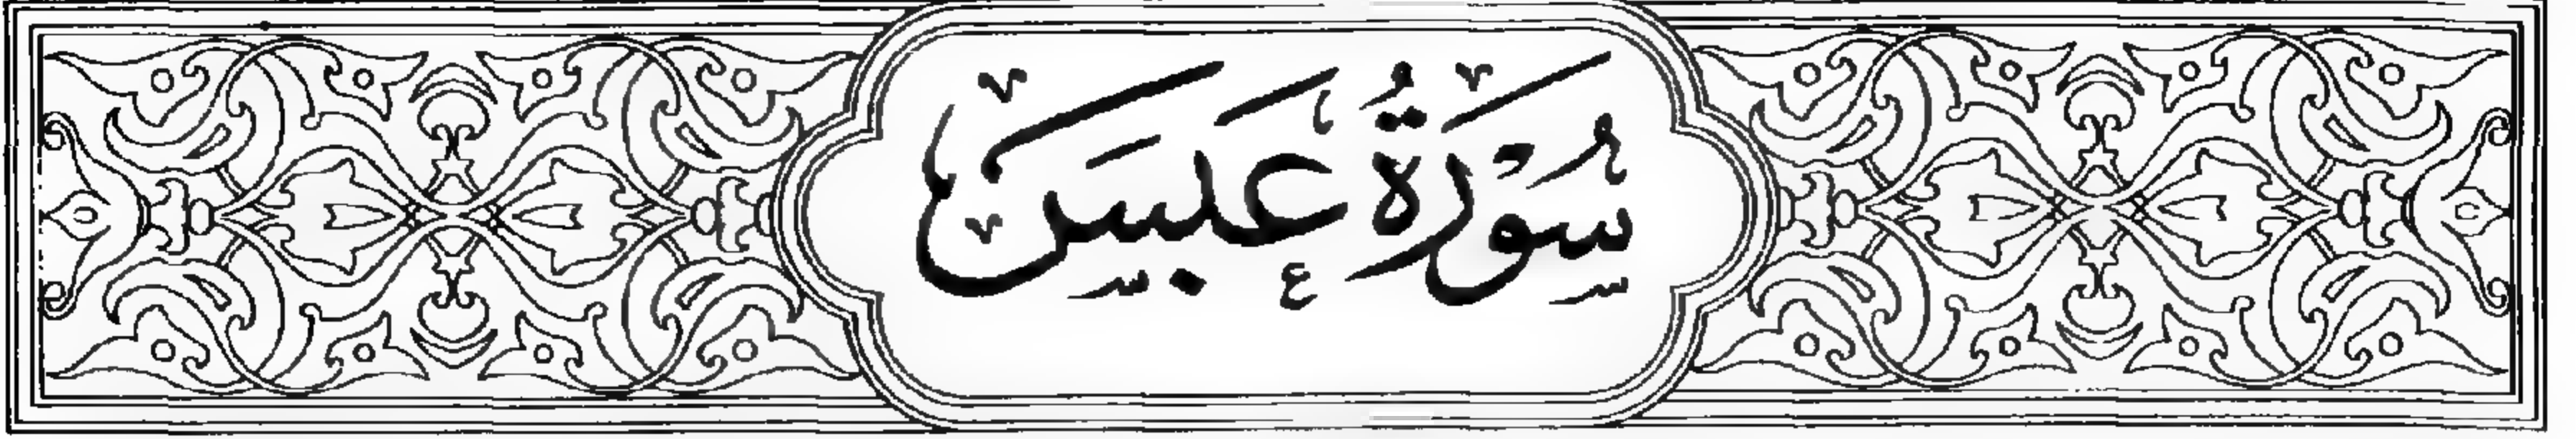 سُوْرَةُ عَبَسَ